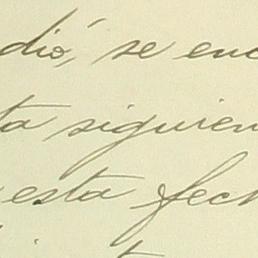 dió, se enc
ta siguien
esta fech